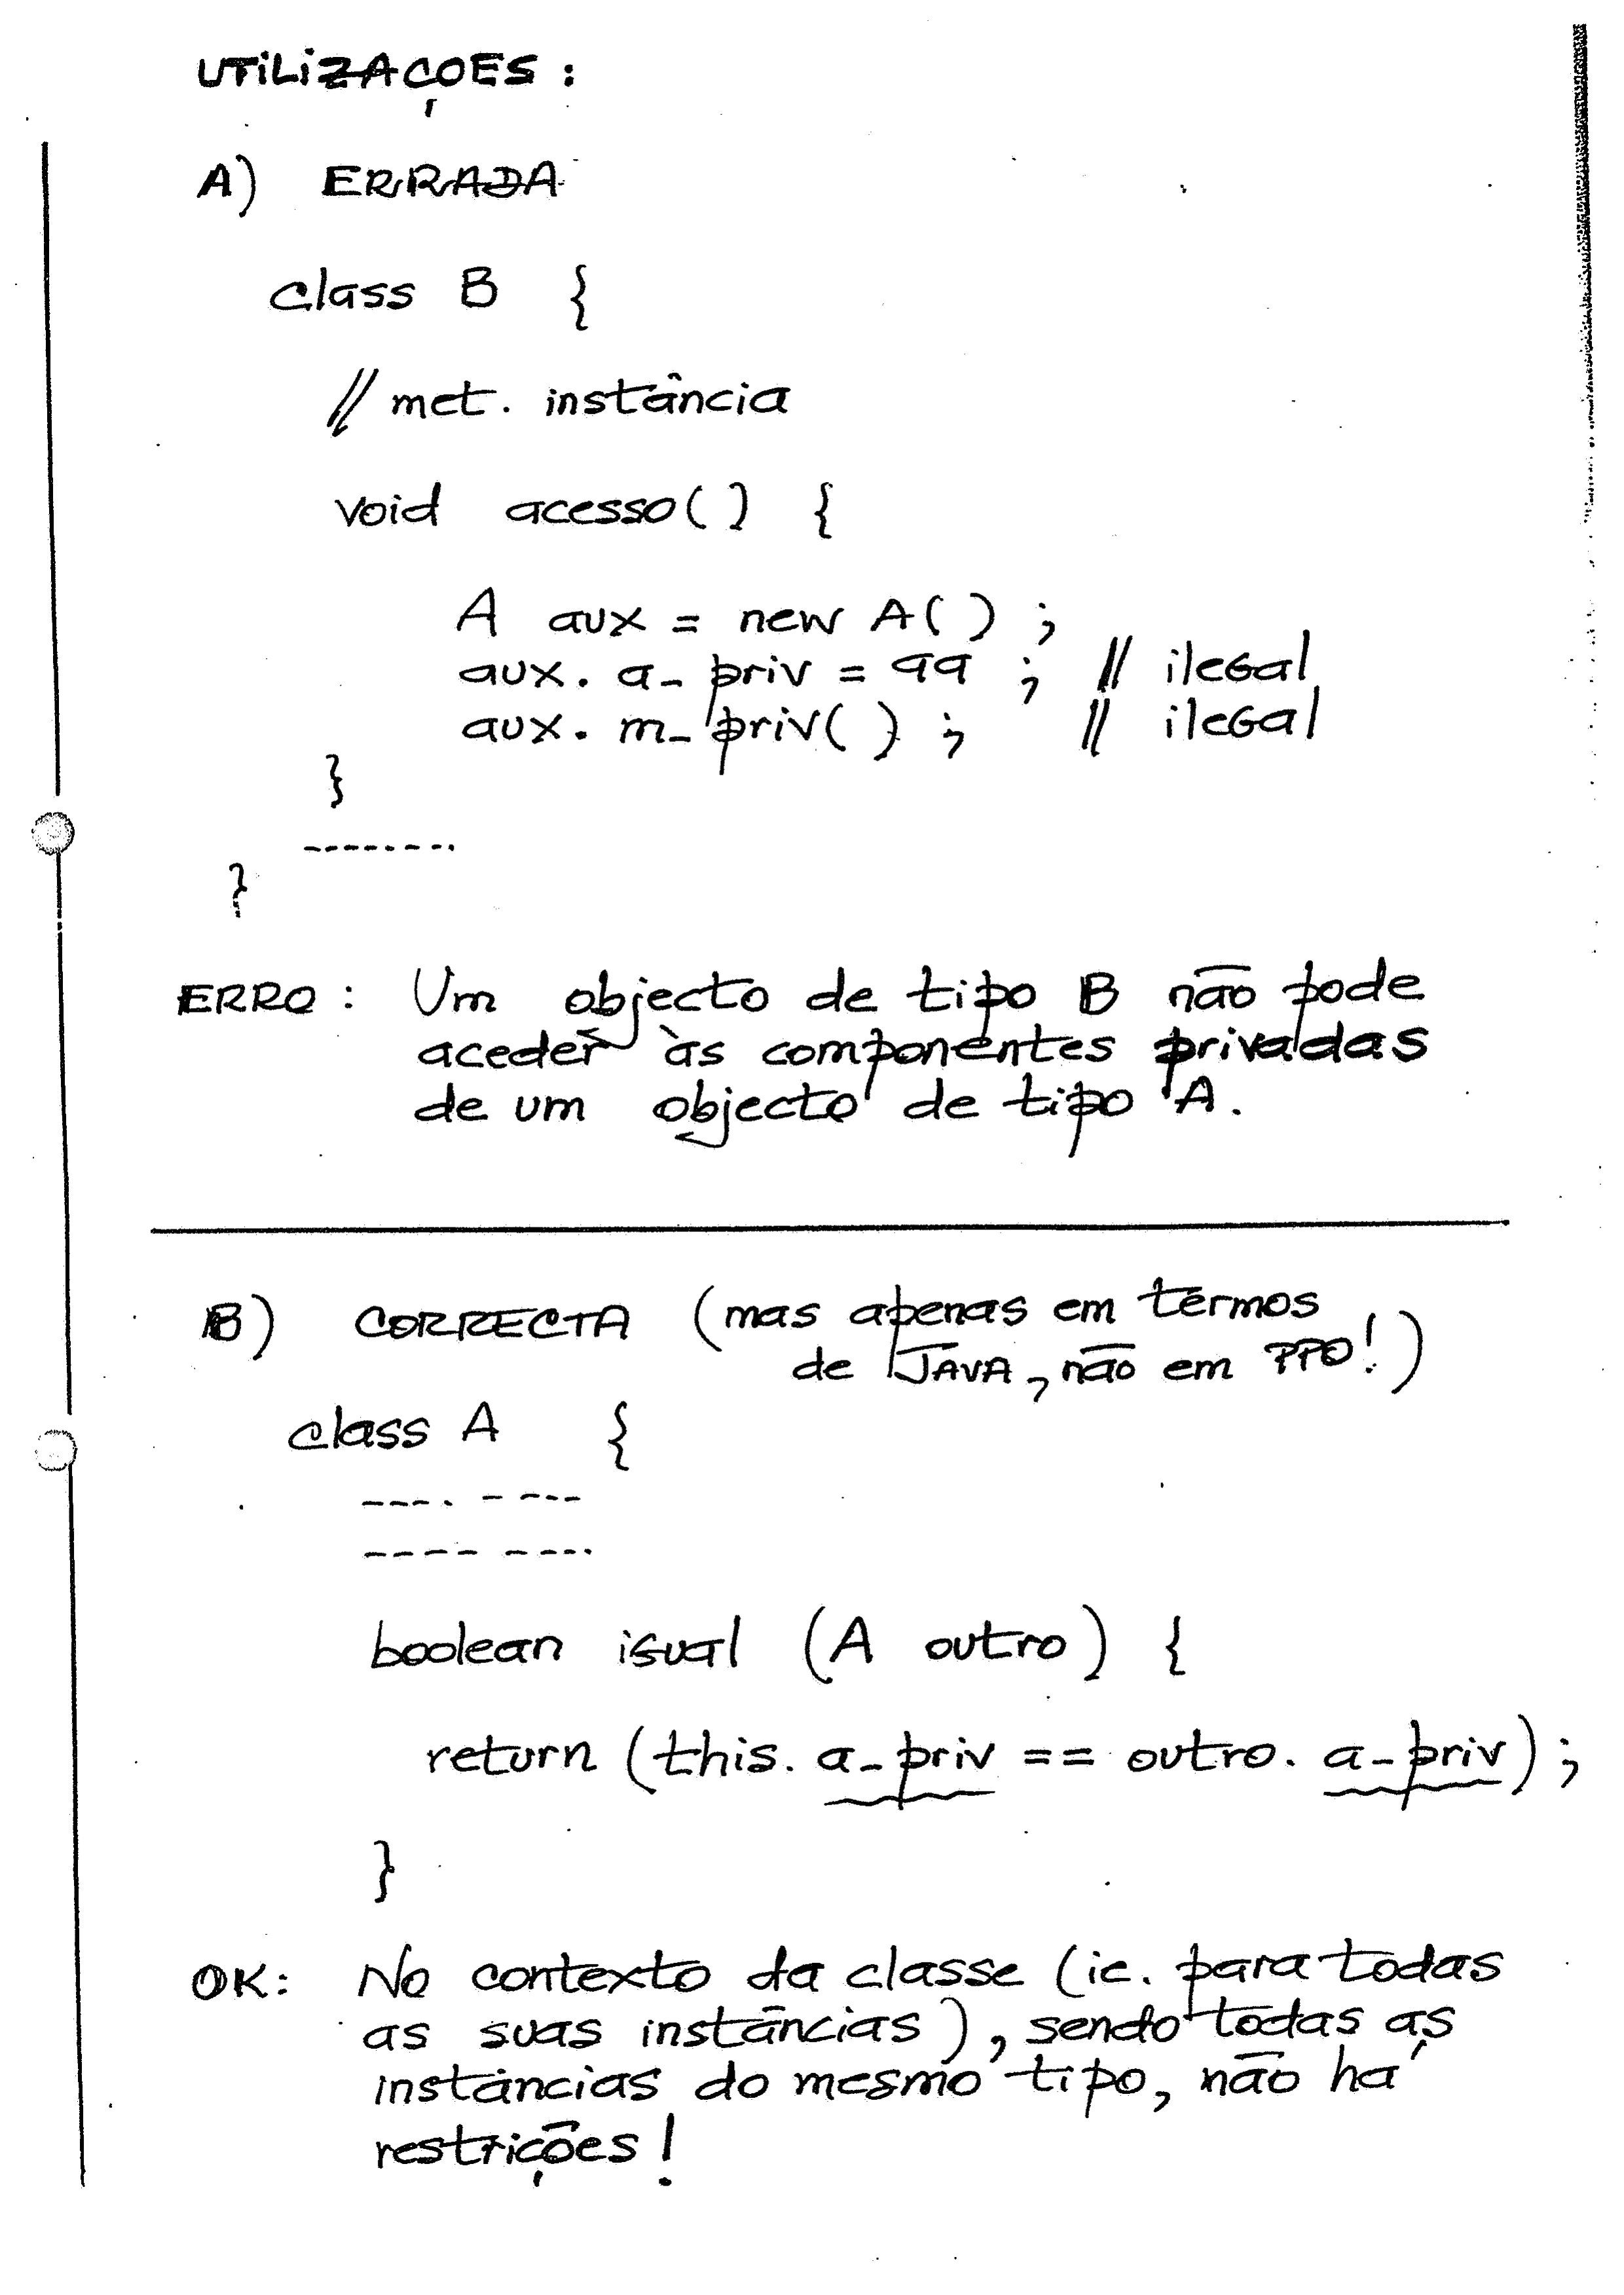 UTiLiZAÇOES :
A) ERRADA
class B {
// met. instância
void acesso( ) {
A aux = new A( ) ;
aux. a_priv = 99 ; // ilegal
aux. m_priv( ) ; // ilegal
}
--------
}
ERRO : Um objecto de tipo B não pode
aceder às componentes privadas
de um objecto de tipo A.
B) CORRECTA (mas apenas em termos
de JAVA, não em PPO!)
class A {
---- ----
---- ----
boolean igual (A outro) {
return (this. a_priv == outro. a_priv) ;
}
OK: No contexto da classe (ie. para todas
as suas instâncias), sendo todas as
instâncias do mesmo tipo, não há
restrições !